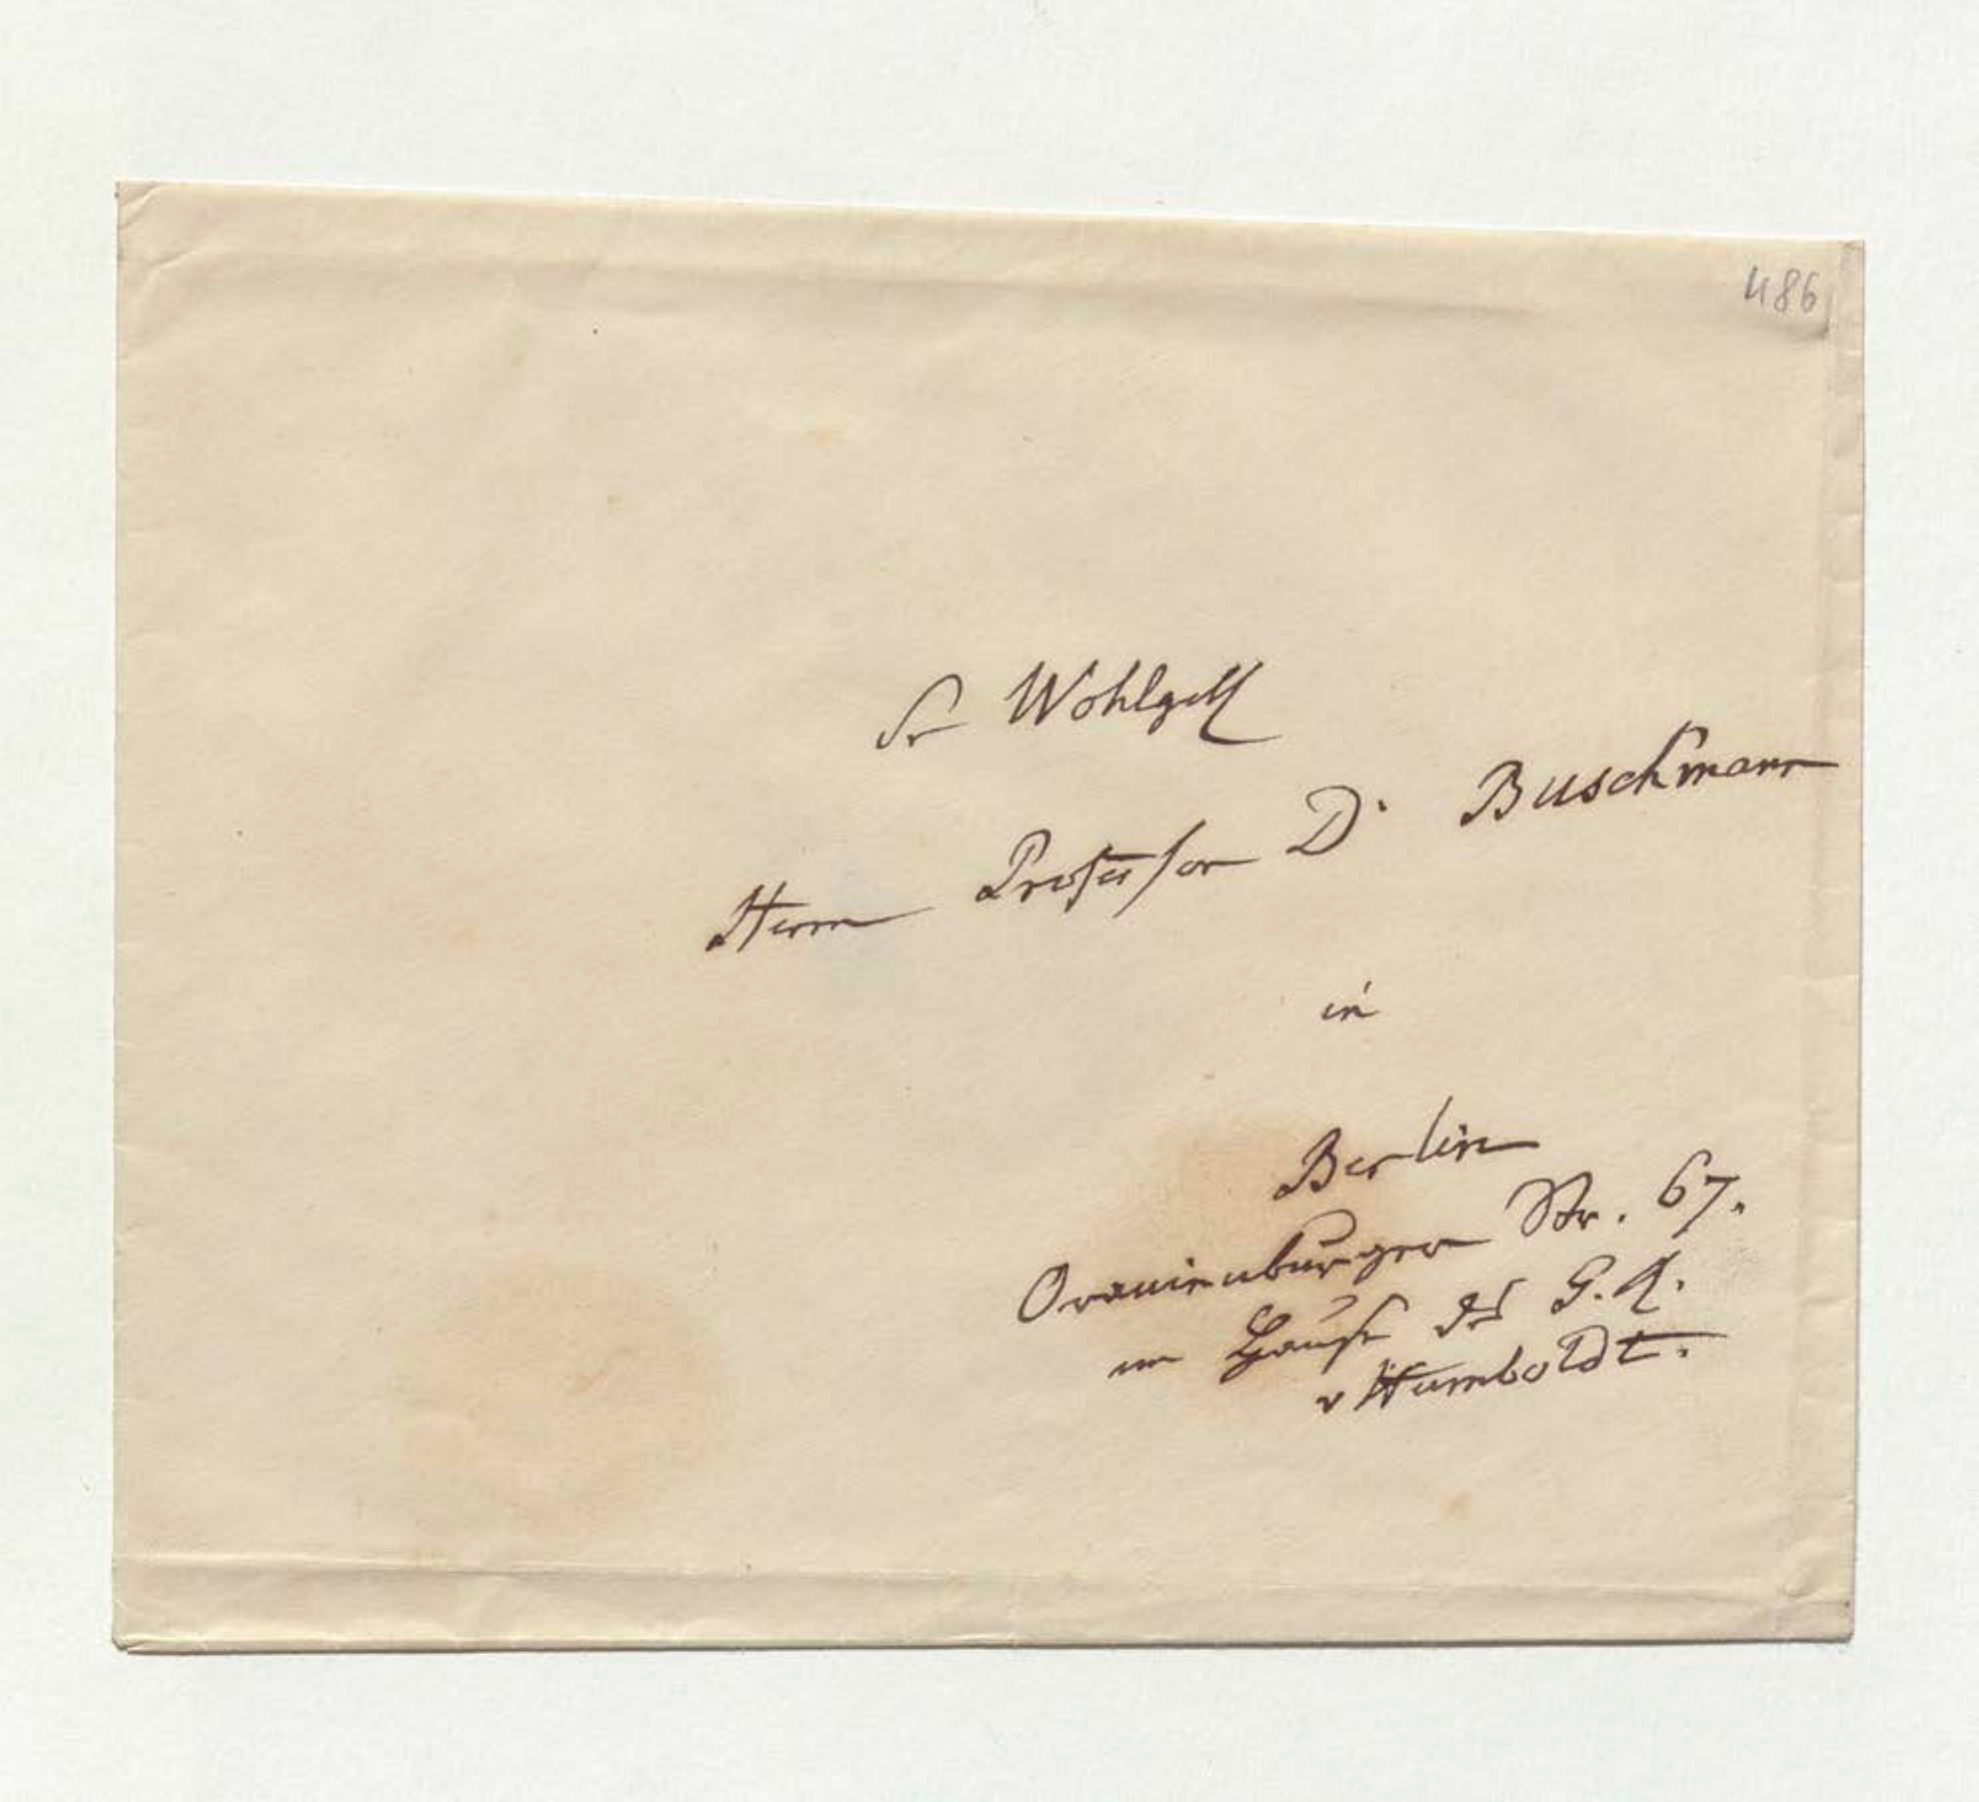 486
Sr Wohlgeb
Herrn Professor Dr Buschmann
in
Berlin
Oranienburger Str. 67.
im Hause des G. R.
v Humboldt.